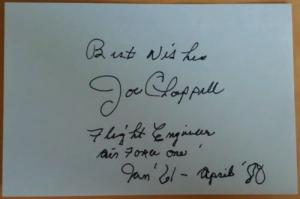 Best Wishes
Joe Chappell
Flight Engineer
"Air Force One"
Jan' 61 - April '80